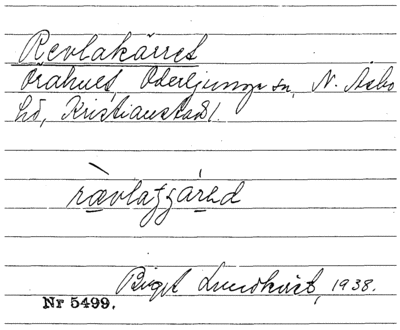 Revlakärret
Örahult, Oderljunga sn, N. Åsbo
hd, Kristianstads l.
Birgit Lundkvist, 1938.
Nr 5499.